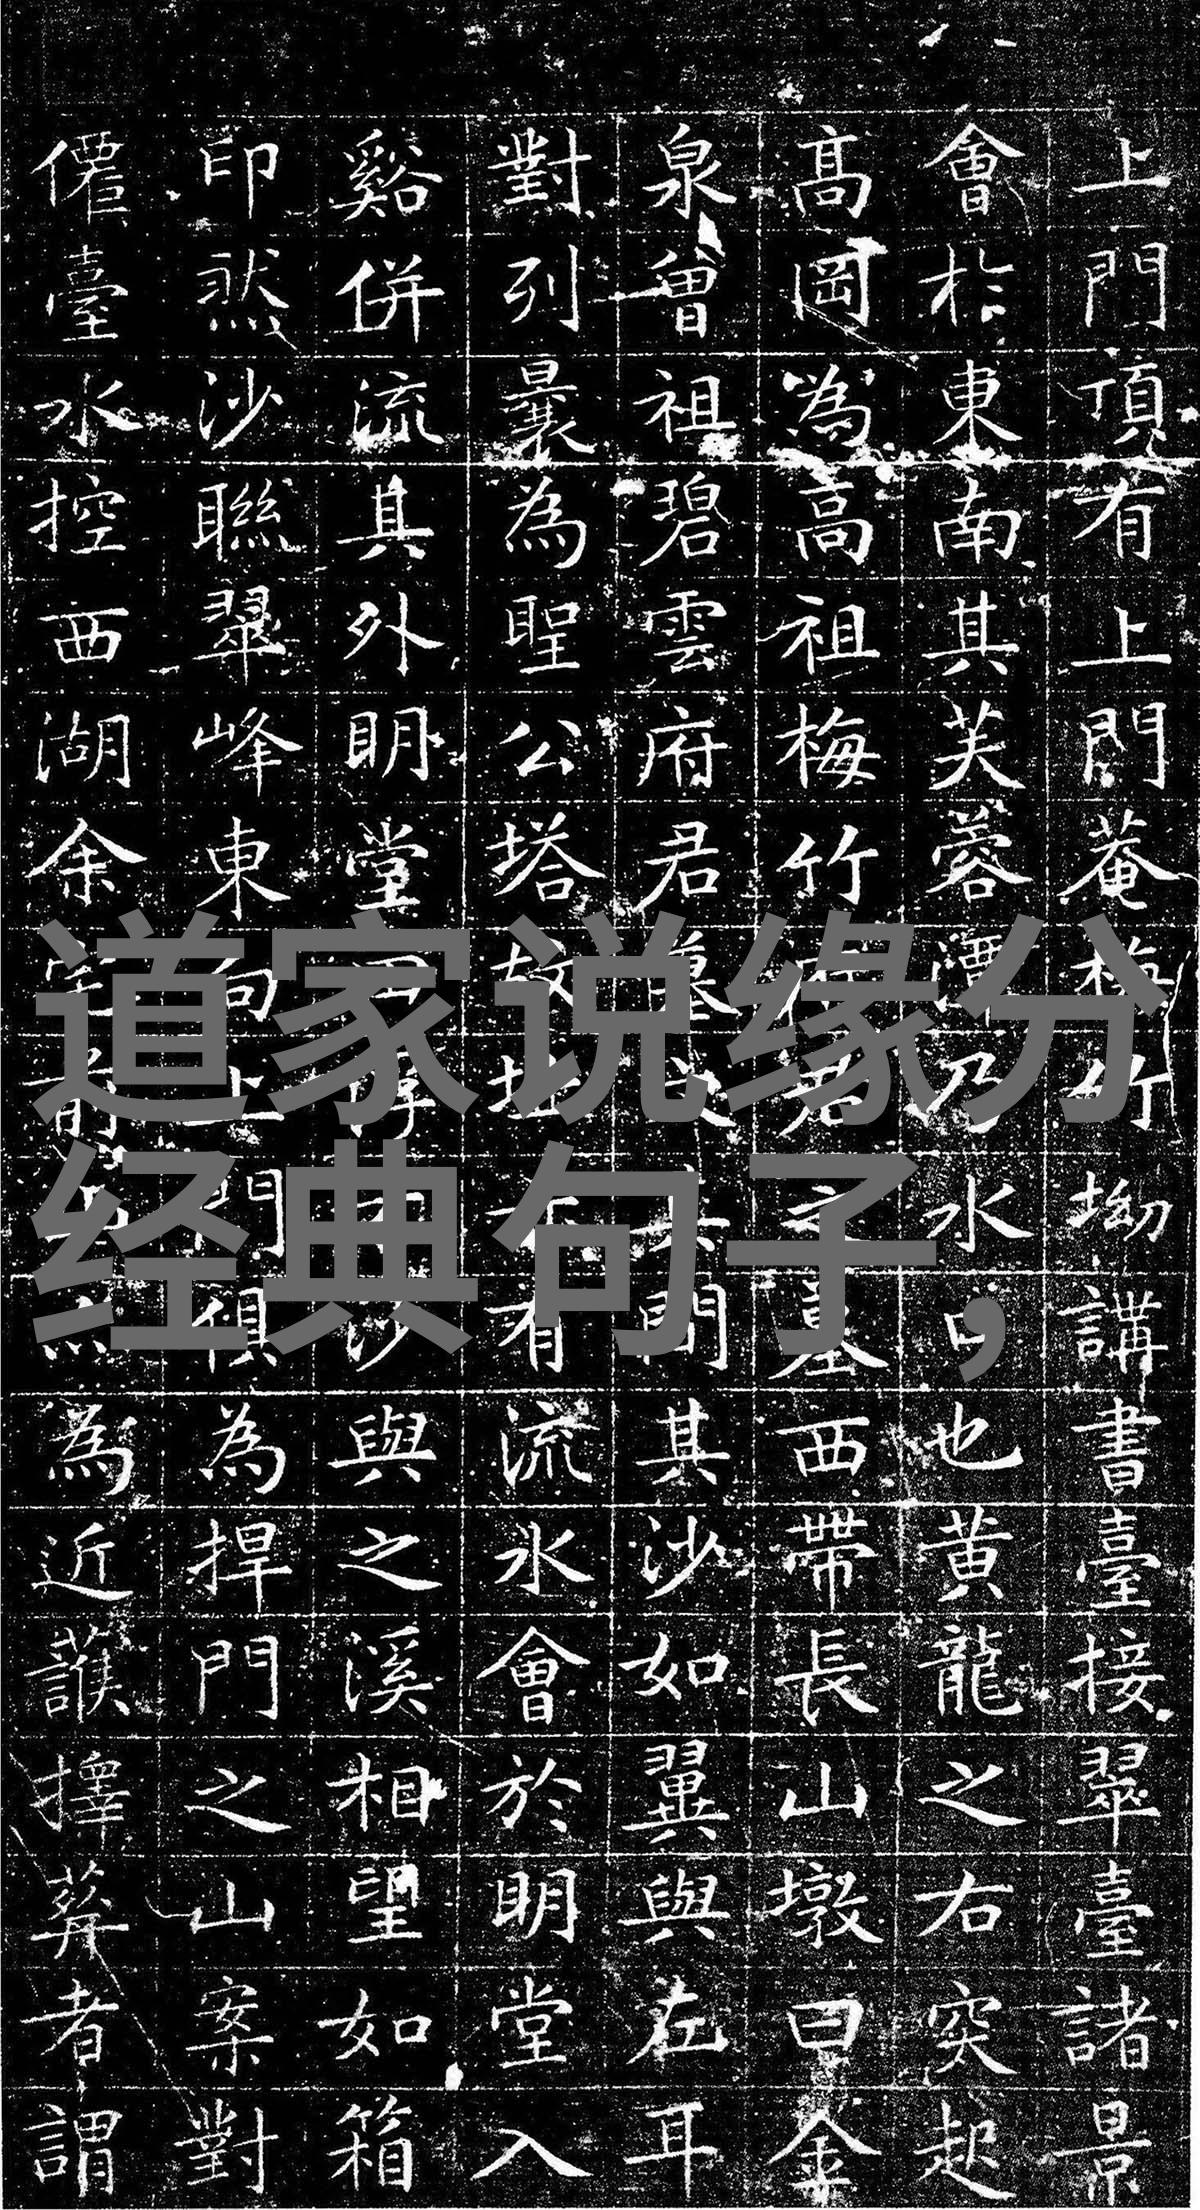 上門頂有上門菴梅竹坳講書臺接翠臺諸景
會扵東南其芙蓉潭乃水口也黃龍之右突起
高岡為高祖梅竹府君之墓西帶長山墩曰金
泉曾祖碧雲府君墓間其沙如翼與左耳
對列曩為聖公塔故址有流水會於明堂入
谿併流其外明堂沙與之溪相望如箱
印然沙聯翠峰東向上門為捍門之山案對
僊臺水控西湖余為近護擇葬者謂
道家说缘分
经典句子，